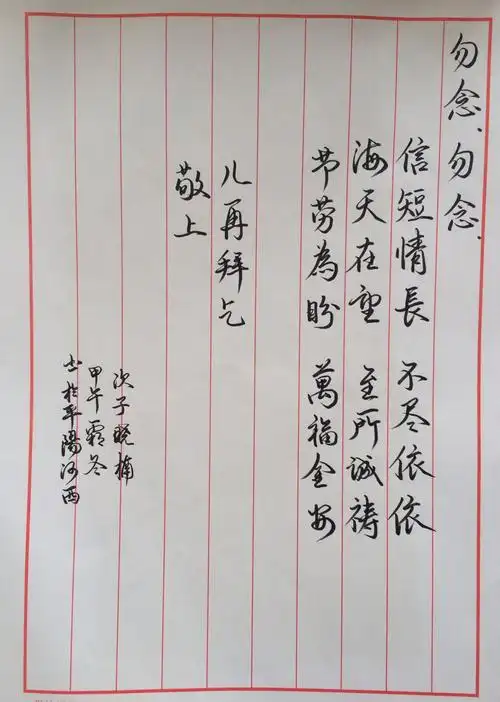 勿念、勿念.
信短情長 不尽依依
海天在望 至所誠祷
节劳為盼 萬福金安
儿再拜乞
敬上
次子晓楠
甲午霜冬
书於平陽河西